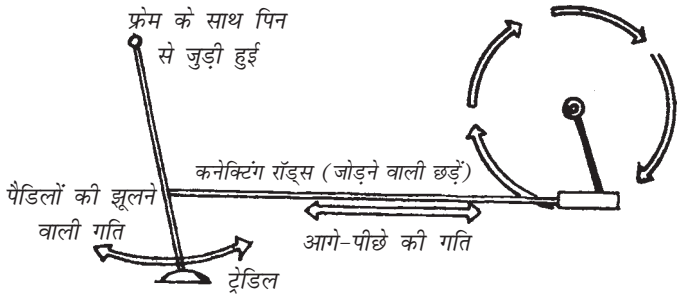 फ्रेम के साथ पिन
से जुड़ी हुई
कनेक्टिंग रॉड्स (जोड़ने वाली छड़ें)
पैडिलों की झूलने
वाली गति
आगे-पीछे की गति
ट्रेडिल